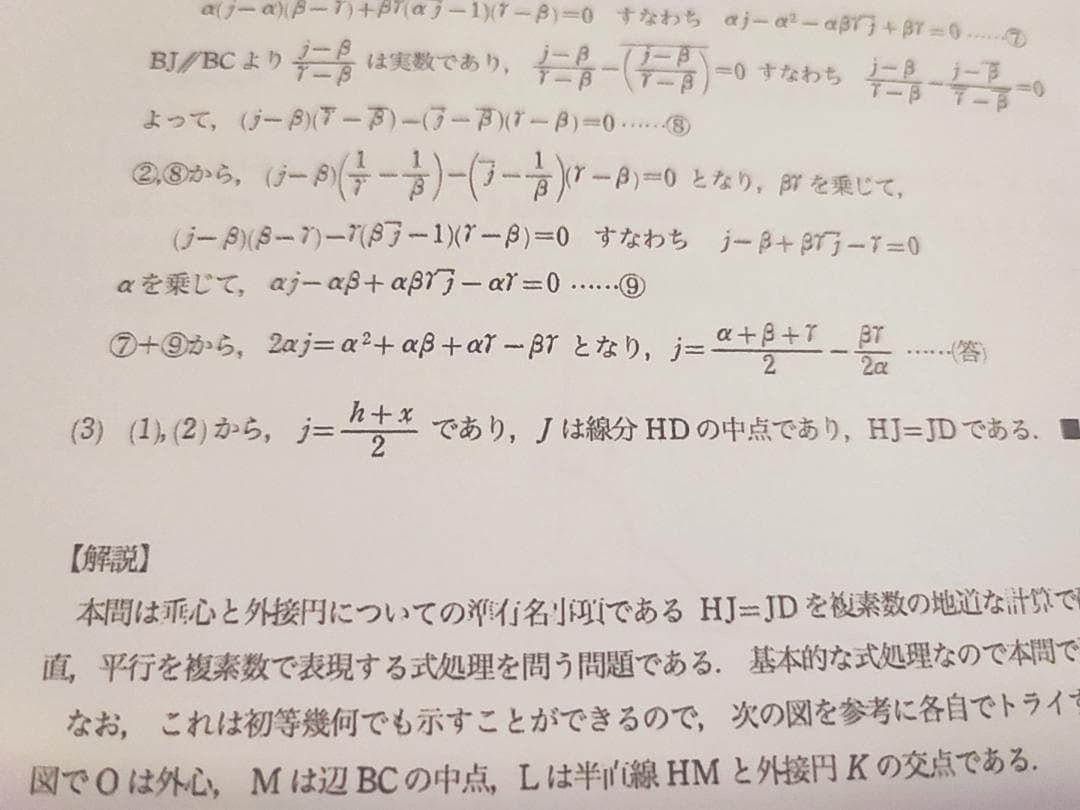 α(j−α)(β−γ)+βγ(αj̅−1)(γ−β)=0 すなわち αj−α²−αβγj̅+βγ=0 ……⑦
BJ∥BC より (j−β)/(γ−β) は実数であり, (j−β)/(γ−β)−\overline{((j−β)/(γ−β))}=0 すなわち (j−β)/(γ−β)−(j̅−β̅)/(γ̅−β̅)=0
よって, (j−β)(γ̅−β̅)−(j̅−β̅)(γ−β)=0 ……⑧
②,⑧から, (j−β)(1/γ−1/β)−(j̅−1/β)(γ−β)=0 となり, βγを乗じて,
(j−β)(β−γ)−γ(βj̅−1)(γ−β)=0 すなわち j−β+βγj̅−γ=0
αを乗じて, αj−αβ+αβγj̅−αγ=0 ……⑨
⑦+⑨から, 2αj=α²+αβ+αγ−βγ となり, j=(α+β+γ)/2−βγ/2α ……(答)
(3) (1),(2)から, j=(h+x)/2 であり, J は線分 HD の中点であり, HJ=JD である. ■
【解説】
本問は垂心と外接円についての準有名事項である HJ=JD を複素数の地道な計算で
直, 平行を複素数で表現する式処理を問う問題である. 基本的な式処理なので本問で
なお, これは初等幾何でも示すことができるので, 次の図を参考に各自でトライす
図で O は外心, M は辺 BC の中点, L は半直線 HM と外接円 K の交点である.